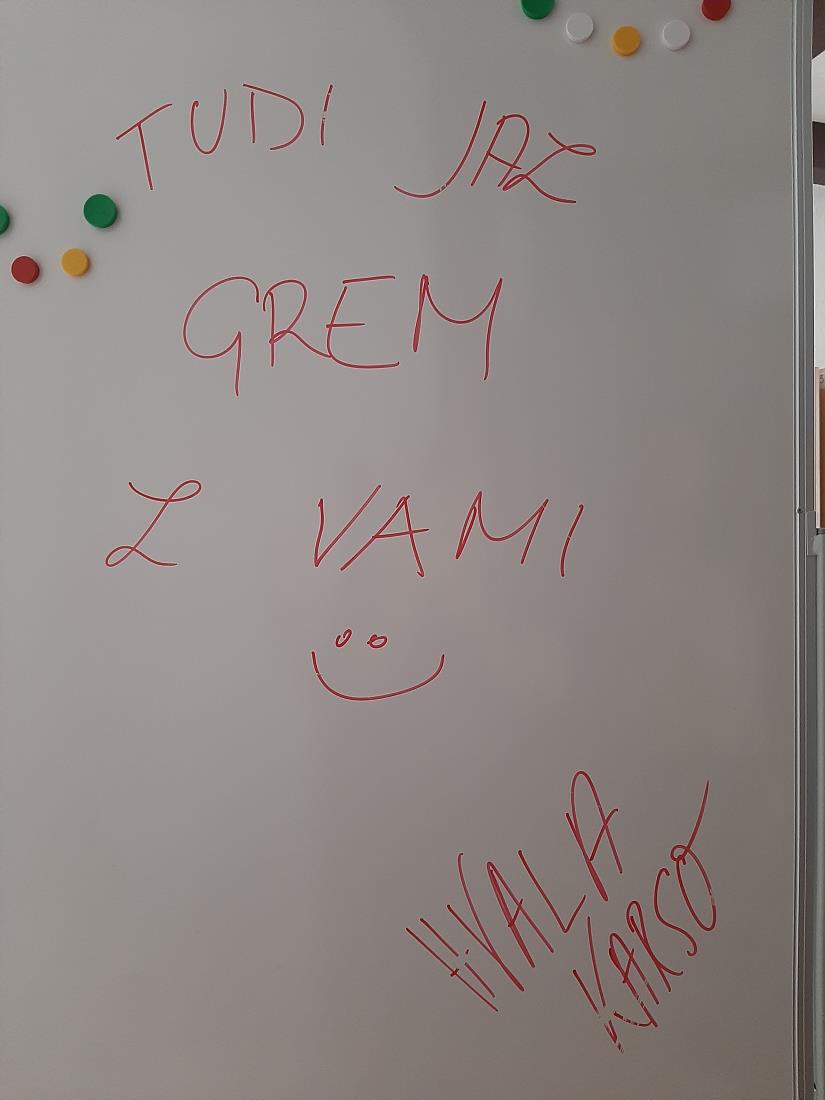 TUDI JAZ
GREM
Z VAMI
HVALA
KARSO